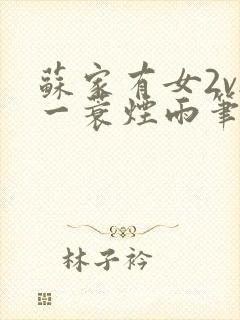 蘇家有女2v
一蓑煙雨筆
林子衿